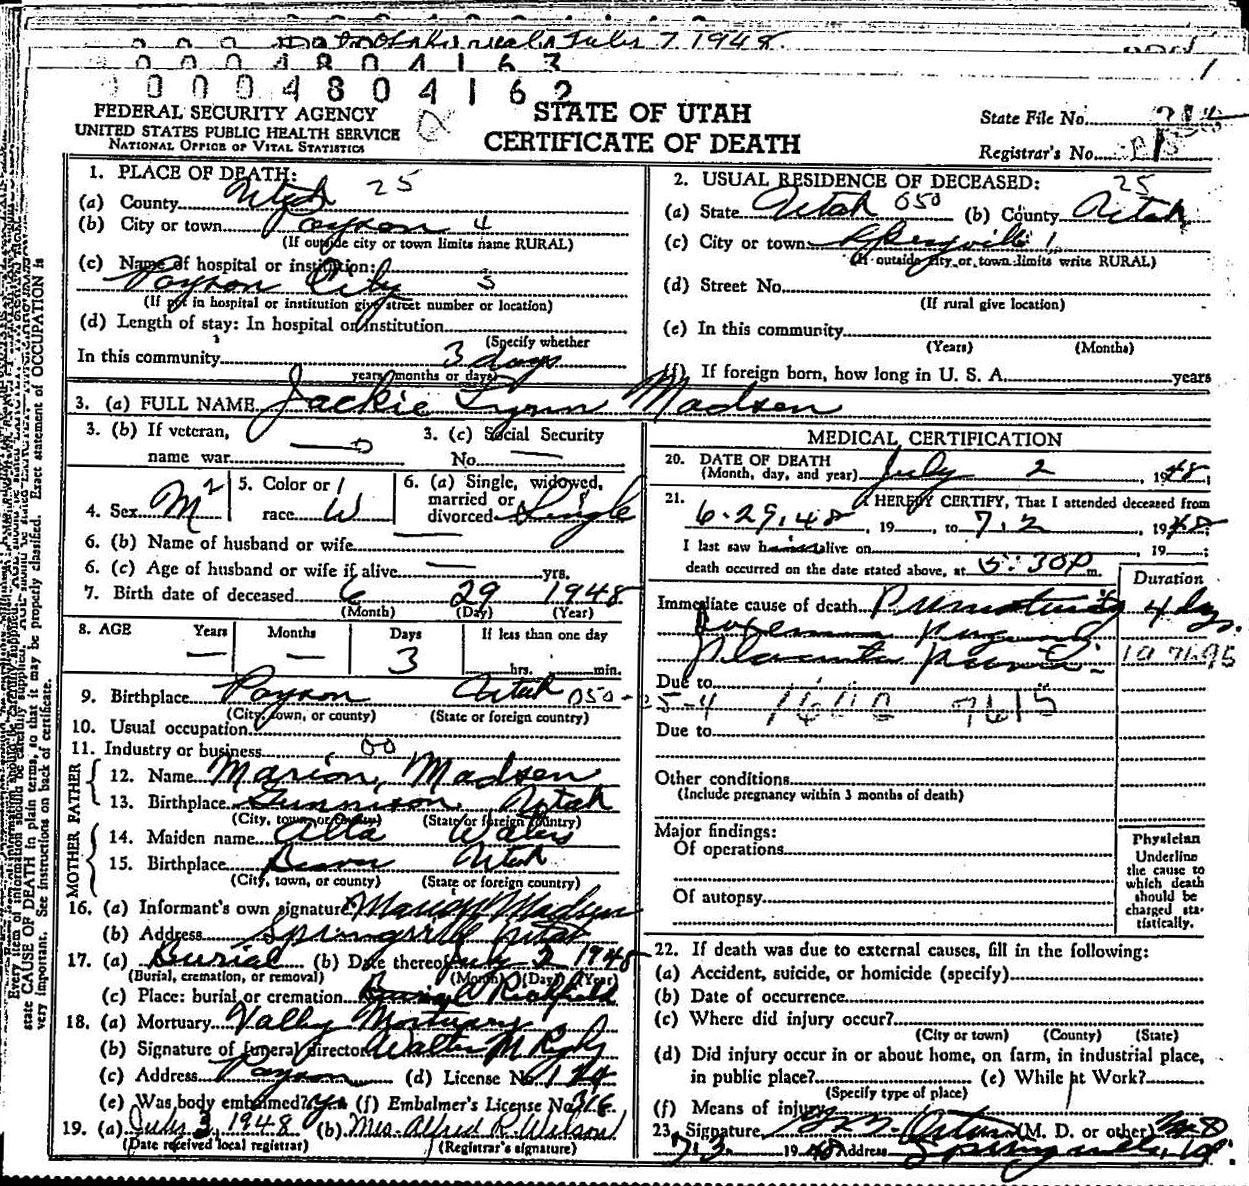 July 7 1948.
0 0 0 4 8 0 4 1 6 3
0 0 0 4 8 0 4 1 6 2
1
FEDERAL SECURITY AGENCY
UNITED STATES PUBLIC HEALTH SERVICE
NATIONAL OFFICE OF VITAL STATISTICS
STATE OF UTAH
CERTIFICATE OF DEATH
State File No.
Registrar's No.
1. PLACE OF DEATH:
(a) County Utah 25
(b) City or town Payson 4
(If outside city or town limits name RURAL)
(c) Name of hospital or institution:
Payson City 3
(If not in hospital or institution give street number or location)
(d) Length of stay: In hospital or institution
(Specify whether
In this community 3 days
years, months or days)
2. USUAL RESIDENCE OF DECEASED:
(a) State Utah 050 (b) County Utah 25
(c) City or town Springville 1
(If outside city or town limits write RURAL)
(d) Street No.
(If rural give location)
(e) In this community
(Years) (Months)
(f) If foreign born, how long in U. S. A. years
3. (a) FULL NAME Jackie Lynn Madsen
3. (b) If veteran,
name war
3. (c) Social Security
No.
4. Sex M 2
5. Color or 1
race W
6. (a) Single, widowed,
married or
divorced Single
6. (b) Name of husband or wife
6. (c) Age of husband or wife if alive yrs.
7. Birth date of deceased 6 29 1948
(Month) (Day) (Year)
8. AGE Years Months Days If less than one day
— — 3 hrs. min.
9. Birthplace Payson Utah 050-25-4
(City, town, or county) (State or foreign country)
10. Usual occupation
11. Industry or business 00
FATHER
12. Name Marion Madsen
13. Birthplace Gunnison Utah
(City, town, or county) (State or foreign country)
MOTHER
14. Maiden name Alta Waters
15. Birthplace Beaver Utah
(City, town, or county) (State or foreign country)
16. (a) Informant's own signature Marion Madsen
(b) Address Springville Utah
17. (a) Burial (b) Date thereof July 2 1948
(Burial, cremation, or removal) (Month) (Day) (Year)
(c) Place: burial or cremation Richfield
18. (a) Mortuary Valley Mortuary
(b) Signature of funeral director Walter M
(c) Address Payson (d) License No. 174
(e) Was body embalmed? Yes (f) Embalmer's License No. 316
19. (a) July 3, 1948 (b) Mrs. Alfred R. Wilson
(Date received local registrar) (Registrar's signature)
MEDICAL CERTIFICATION
20. DATE OF DEATH
(Month, day, and year) July 2, 1948;
21. I HEREBY CERTIFY, That I attended deceased from
6.29.48, 19 , to 7.2, 1948;
I last saw h alive on , 19 ;
death occurred on the date stated above, at 5:30 P m.
Duration
Immediate cause of death Prematurity 4 dys.
Placenta
Due to
7615
Due to
Other conditions
(Include pregnancy within 3 months of death)
Major findings:
Of operations
Of autopsy
Physician
Underline
the cause to
which death
should be
charged sta-
tistically.
22. If death was due to external causes, fill in the following:
(a) Accident, suicide, or homicide (specify)
(b) Date of occurrence
(c) Where did injury occur?
(City or town) (County) (State)
(d) Did injury occur in or about home, on farm, in industrial place,
in public place? (e) While at Work?
(Specify type of place)
(f) Means of injury
23. Signature (M. D. or other) M D
7.3 1948 Address Springville, U.
state CAUSE OF DEATH in plain terms, so that it may be properly classified. Exact statement of OCCUPATION is
very important. See instructions on back of certificate.